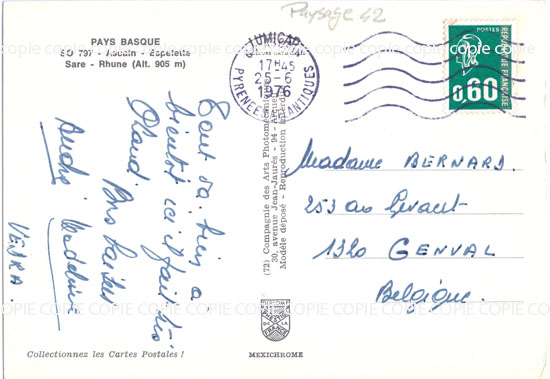 Paysage 42
PAYS BASQUE
SO 797 - Ascain - Espelette
Sare - Rhune (Alt. 905 m)
17H45
25-6
1976
PYRENEES ATLANTIQUES
POSTES
0,60
REPUBLIQUE FRANÇAISE
Tout va bien a
bientôt ici il fait très
chaud Bons baisers
André Madeleine
(72) Compagnie des Arts Photomécaniques
30, avenue Jean-Jaurès - 94 -
Modèle déposé - Reproduction
Madame BERNARD.
253
1320 GENVAL
Belgique.
COPIE COPIE COPIE COPIE COPIE COPIE
Collectionnez les Cartes Postales !
MEXICHROME